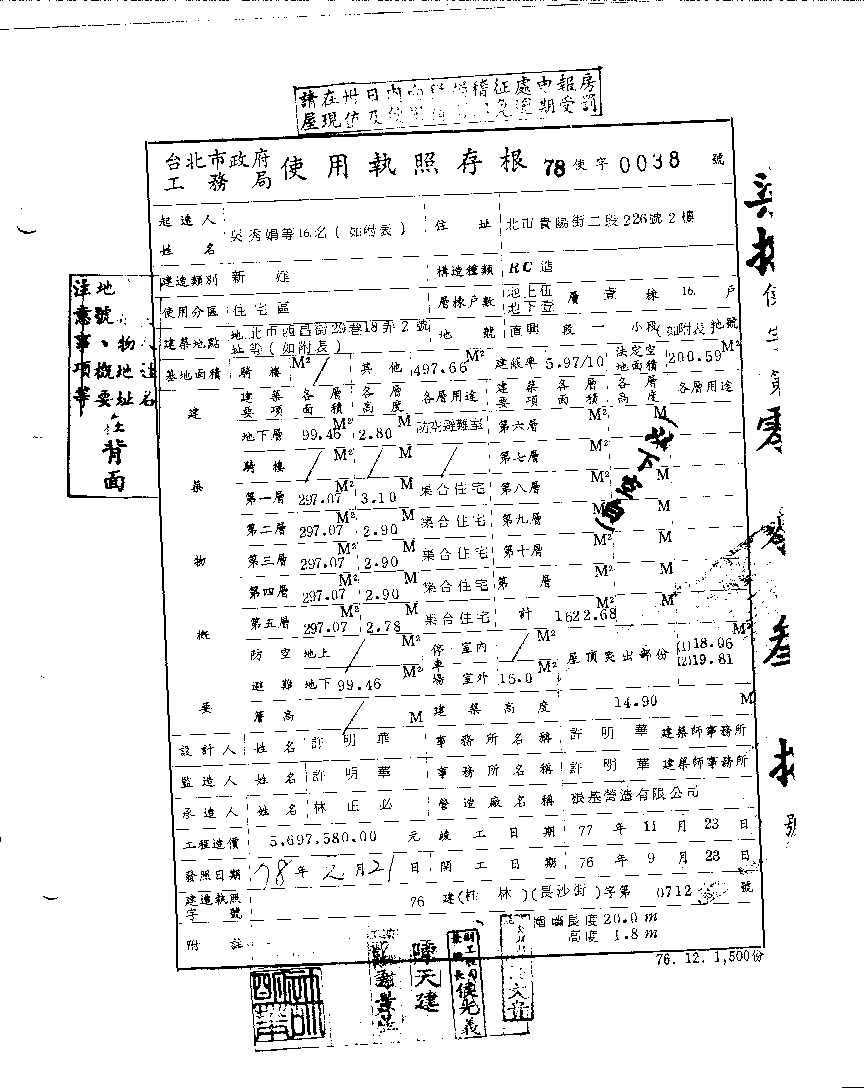 請在卅日內向 稽征處申報房
屋現值及使 逾期受罰
台北市政府
工務局
使用執照存根 78 使字 0038 號
起造人姓名 吳秀娟等16名(如附表) 住址 北市貴陽街二段226號2樓
建造類別 新建 構造種類 RC造
使用分區 住宅區 層棟戶數 地上伍 地下壹 層 壹 棟 16 戶
建築地點 地址 北市西昌街29巷18弄2號等(如附表) 地號 直興段一小段(如附表)地號
基地面積 騎樓 M² 其他 497.66 M² 建蔽率 5.97/10 法定空地面積 200.59 M²
建築物概要
建築要項 各層面積 各層高度 各層用途 建築要項 各層面積 各層高度 各層用途
地下層 99.46 M² 2.80 M 防空避難室 第六層 M² M
騎樓 M² M 第七層 M² M
第一層 297.07 M² 3.10 M 集合住宅 第八層 M² M
第二層 297.07 M² 2.90 M 集合住宅 第九層 M² M
第三層 297.07 M² 2.90 M 集合住宅 第十層 M² M
第四層 297.07 M² 2.90 M 集合住宅 第 層 M² M
第五層 297.07 M² 2.78 M 集合住宅 計 1622.68 M² M
(以下空白)
防空避難 地上 M² 停車場 室內 M² 屋頂突出部份 (1)18.06 (2)19.81 M²
地下 99.46 M² 室外 15.0 M²
簷高 M 建築高度 14.90 M
設計人 姓名 許明華 事務所名稱 許明華建築師事務所
監造人 姓名 許明華 事務所名稱 許明華建築師事務所
承造人 姓名 林正必 營造廠名稱 張基營造有限公司
工程造價 5,697,580.00 元 竣工日期 77年11月23日
發照日期 78年2月21日 開工日期 76年9月23日
建造執照字號 76 建( 林)(長沙街)字第 0712 號
附註 圍牆長度 20.0 m
高度 1.8 m
76.12.1,500份
注意事項
地號、物
概要
地址
在背面
使字第零零叁捌號
陳天建